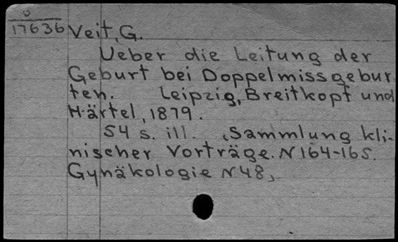 17636 Veit, G.
Ueber die Leitung der
Geburt bei Doppelmissgebur
ten. Leipzig, Breitkopf und
Härtel, 1879.
54 s. ill. (Sammlung kli-
nischer Vorträge. N 164-165.
Gynäkologie N 48)